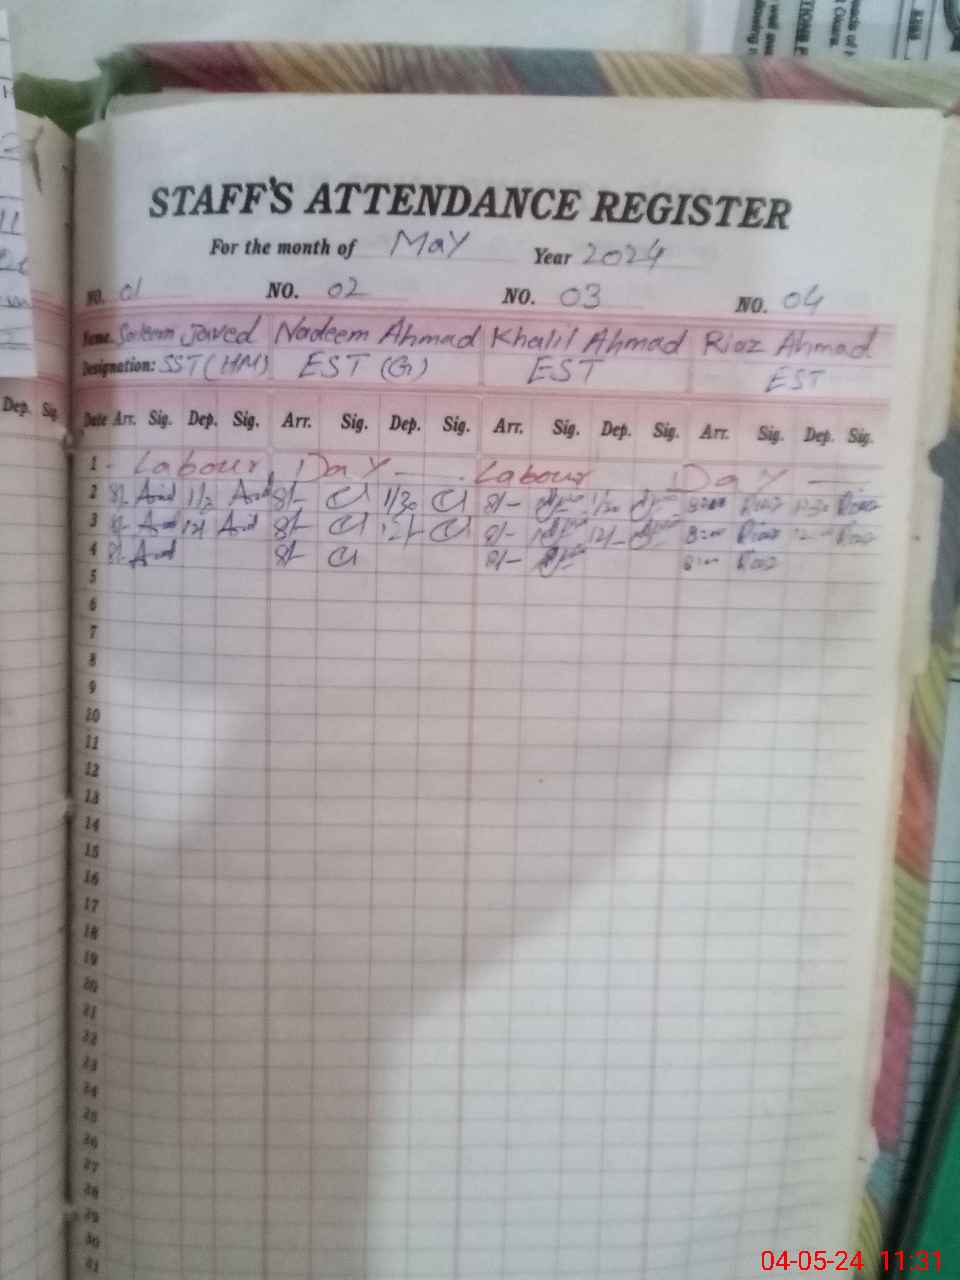 STAFF'S ATTENDANCE REGISTER
For the month of May Year 2024
NO. 01 NO. 02 NO. 03 NO. 04
Name. Saleem Javed Nadeem Ahmad Khalil Ahmad Riaz Ahmad
Designation: SST (HM) EST (G) EST EST
Dep. Sig.
Date Arr. Sig. Dep. Sig. Arr. Sig. Dep. Sig. Arr. Sig. Dep. Sig. Arr. Sig. Dep. Sig.
1 - Labour Day — Labour Day —
2 8/- 8/- 1/30 8/- 1/30 8:00 Riaz 1:30 Riaz
3 8/- 12/- 8/- 12/- 8/- 12/- 8:00 Riaz Riaz
4 8/- 8/- 8/- 8:00 Riaz
5
6
7
8
9
10
11
12
13
14
15
16
17
18
19
20
21
22
23
24
25
26
27
28
29
30
31
04-05-24 11:31